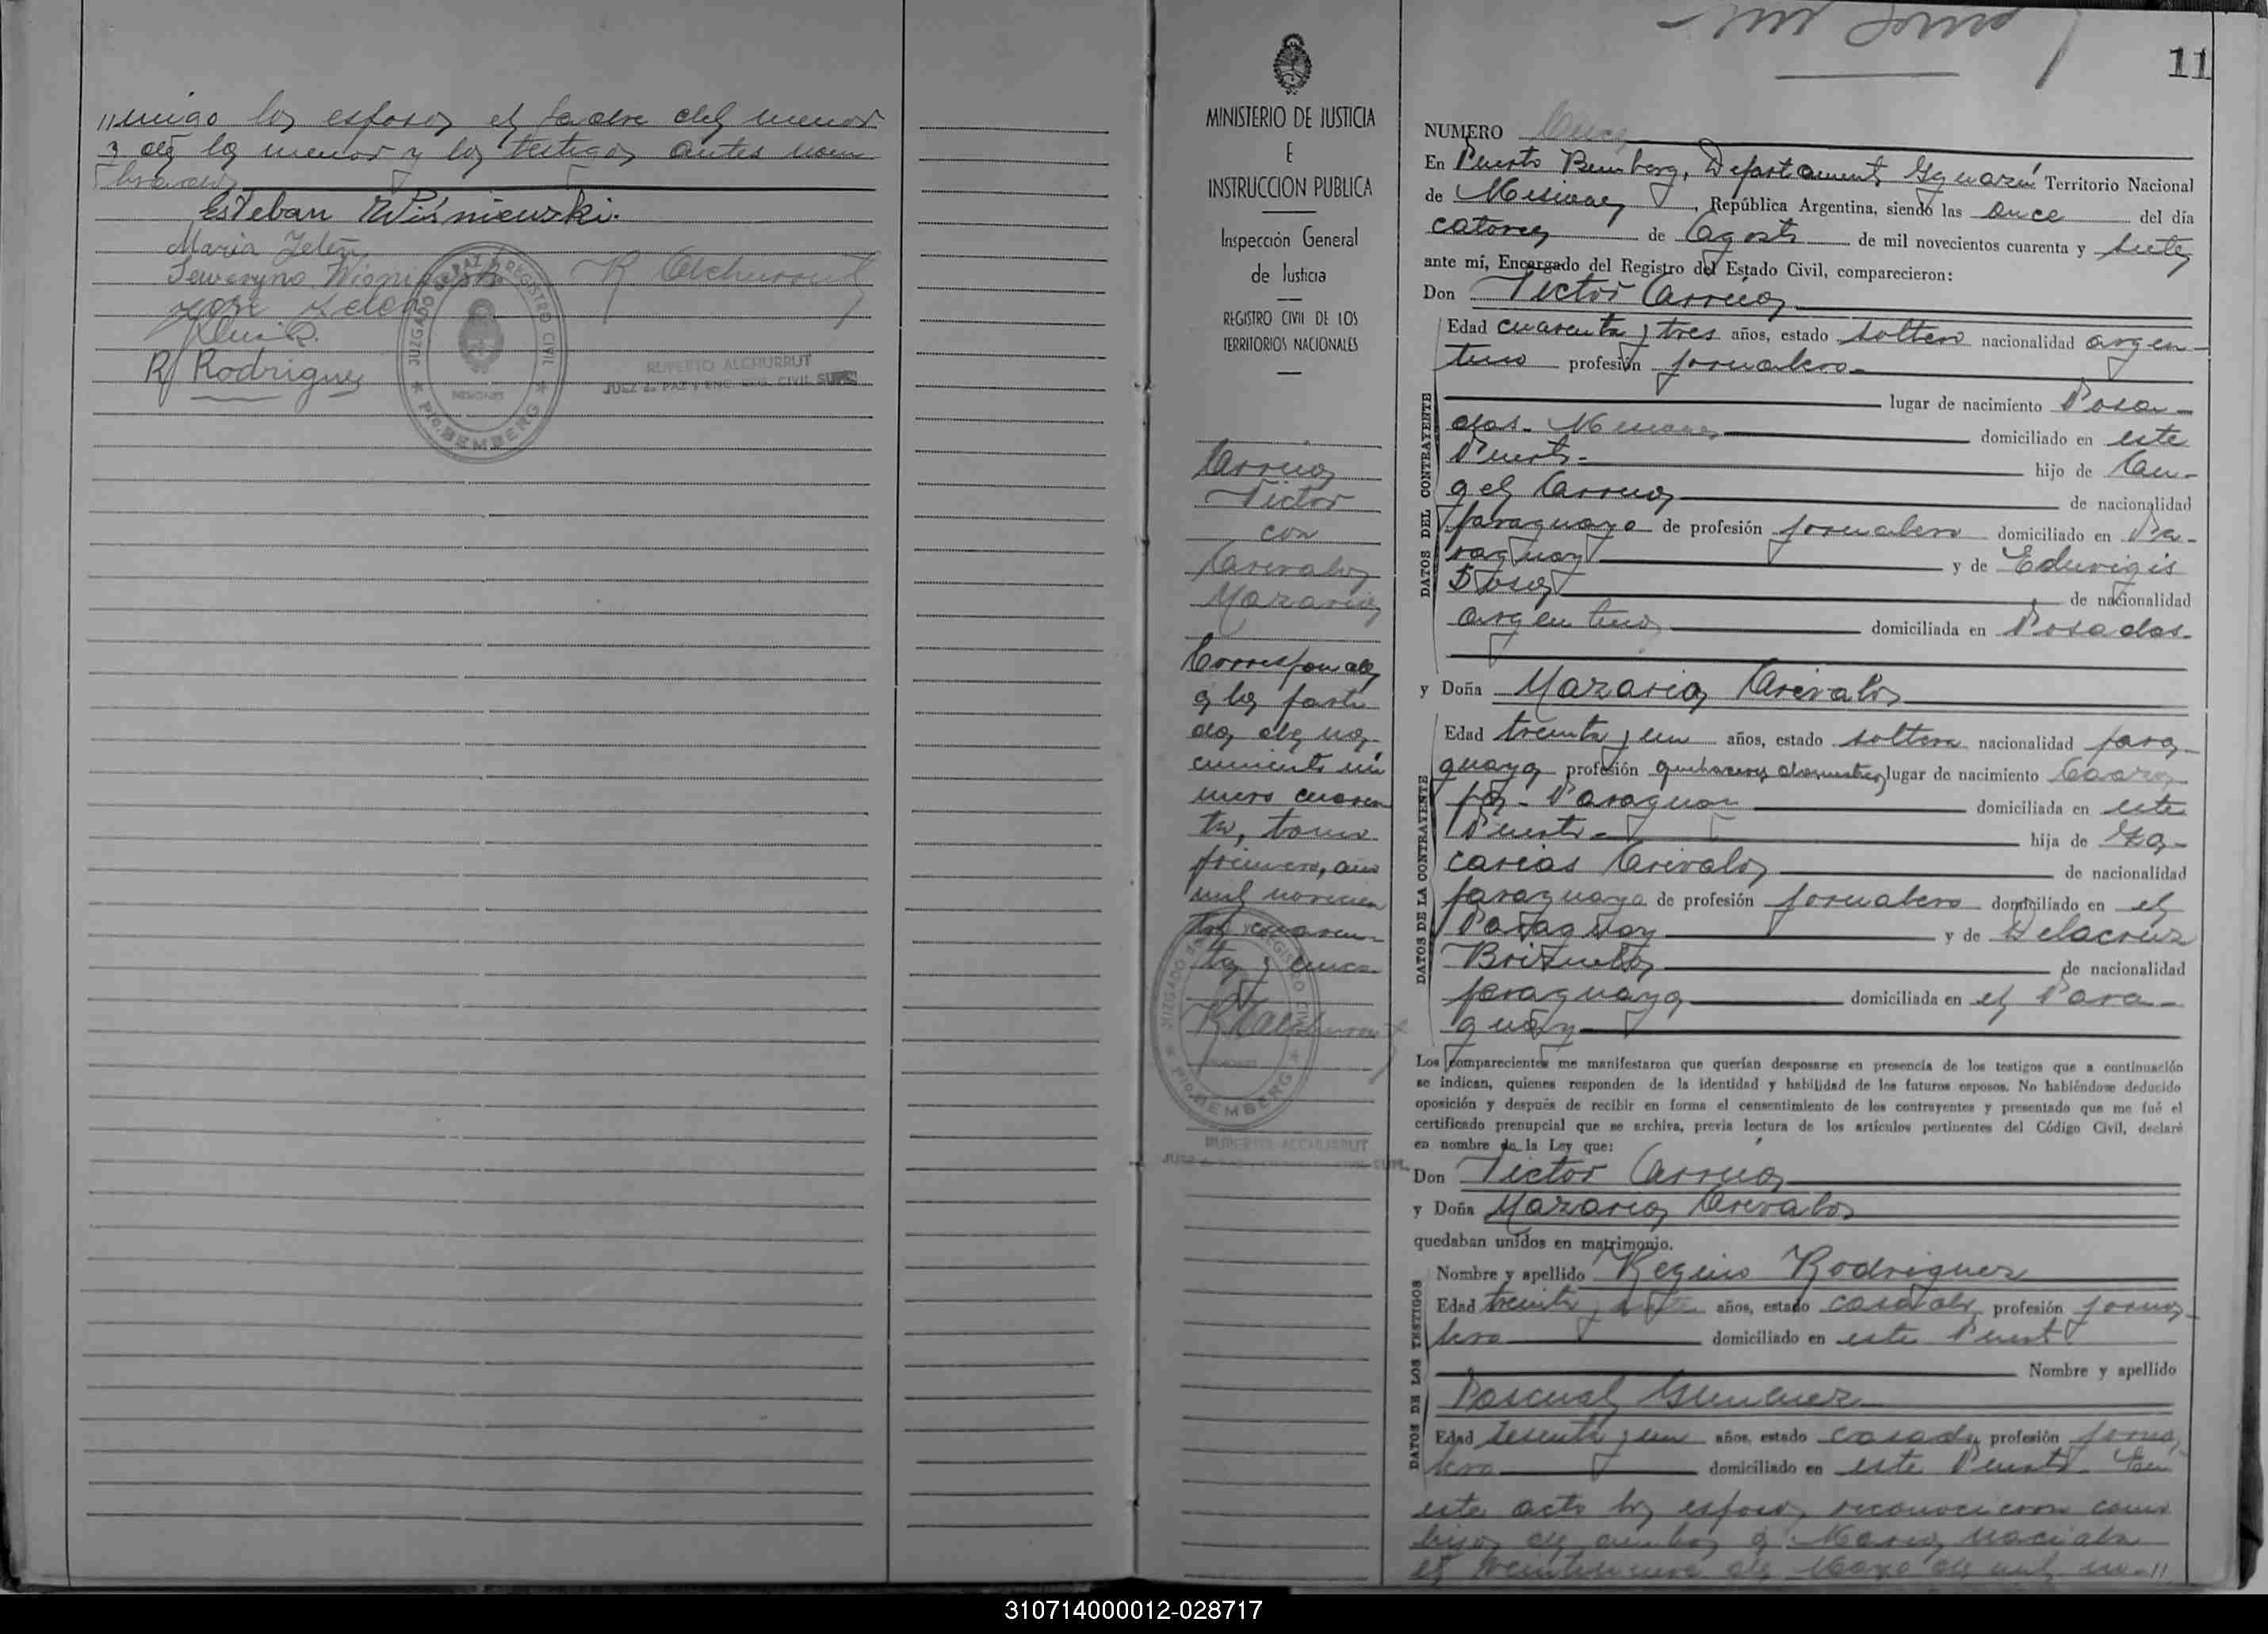 //migo los esposos el padre del menor
y de la menor y los testigos antes nom
brados
Esteban Wiśniewski.
Maria Zeleń
Seweryno Wisniewski
José Zelen
R Alchurrut
R Rodriguez
JUZGADO DE PAZ Y REGISTRO CIVIL
MISIONES
★ PTO. BEMBERG ★
RUPERTO ALCHURRUT
JUEZ DE PAZ Y ENC. REG. CIVIL SUPL.
MINISTERIO DE JUSTICIA
E
INSTRUCCION PUBLICA
Inspección General
de Justicia
REGISTRO CIVIL DE LOS
TERRITORIOS NACIONALES
Arrua
Victor
con
Arevalos
Mazaria
Corresponde
a la parti
da de na-
cimiento nú
mero cuaren
ta, tomo
primero, año
mil novecien
tos cuaren-
ta y cinco
R Alchurrut
JUZGADO DE PAZ Y REGISTRO CIVIL
MISIONES
★ PTO. BEMBERG ★
RUPERTO ALCHURRUT
11
NUMERO Once
En Puerto Bemberg, Departamento Yguazú Territorio Nacional
de Misiones, República Argentina, siendo las once del día
catorce de Agosto de mil novecientos cuarenta y siete
ante mí, Encargado del Registro del Estado Civil, comparecieron:
Don Victor Arrúa
DATOS DEL CONTRAYENTE
Edad cuarenta y tres años, estado soltero nacionalidad argen-
tino profesión jornalero-
lugar de nacimiento Posa-
das- Misiones domiciliado en este
Puerto- hijo de An-
gel Arrua de nacionalidad
paraguaya de profesión jornalero domiciliado en Pa-
raguay y de Eduvigis
Sosa de nacionalidad
argentina domiciliada en Posadas-
y Doña Mazaria Arevalos
DATOS DE LA CONTRAYENTE
Edad treinta y un años, estado soltera nacionalidad para-
guaya profesión quehaceres domesticos lugar de nacimiento Caaza
pá- Paraguay domiciliada en este
Puerto- hija de Za-
carias Arevalos de nacionalidad
paraguaya de profesión jornalero domiciliado en el
Paraguay y de Delacruz
Brizuela de nacionalidad
paraguaya domiciliada en el Para-
guay-
Los comparecientes me manifestaron que querían desposarse en presencia de los testigos que a continuación
se indican, quienes responden de la identidad y habilidad de los futuros esposos. No habiéndose deducido
oposición y después de recibir en forma el consentimiento de los contrayentes y presentado que me fué el
certificado prenupcial que se archiva, previa lectura de los artículos pertinentes del Código Civil, declaré
en nombre de la Ley que:
Don Victor Arrua
y Doña Mazaria Arevalos
quedaban unidos en matrimonio.
DATOS DE LOS TESTIGOS
Nombre y apellido Regino Rodriguez
Edad treinta y siete años, estado casado profesión jorna-
lero domiciliado en este Puerto
Nombre y apellido
Pascual Gimenez
Edad sesenta y un años, estado casado profesión jorna-
lero domiciliado en este Puerto- En
este acto los esposos reconocieron como
hijos de ambos a: Maria nacida
el veintinueve de Mayo de mil no-//
310714000012-028717